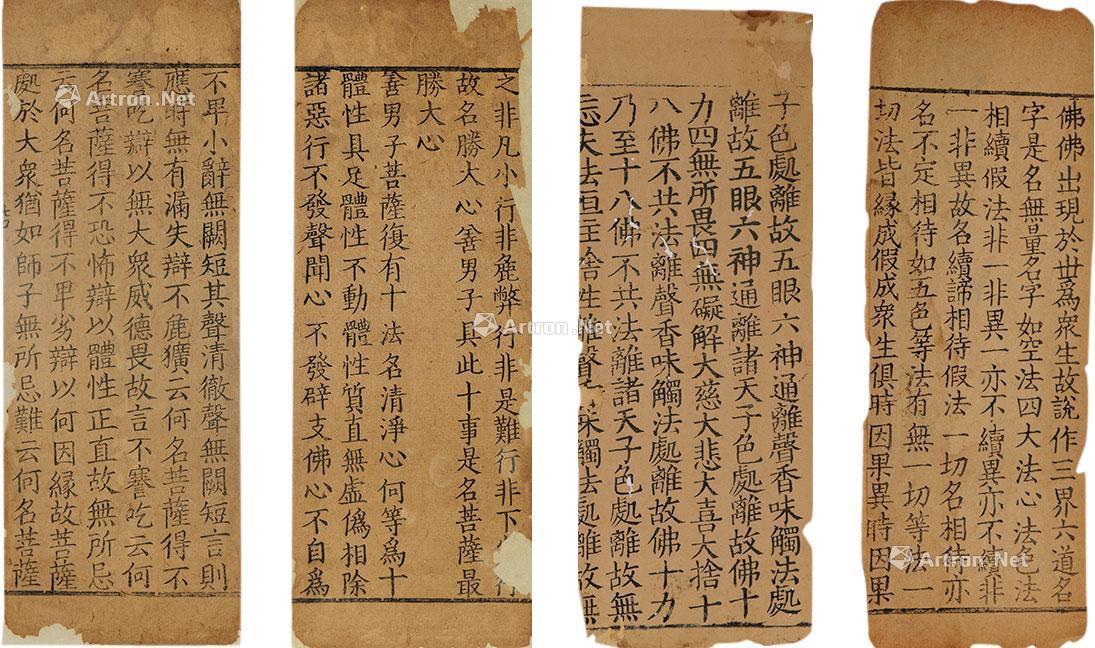 佛佛出現於世爲衆生故說作三界六道名
字是名無量名字如空法四大法心法色法
相續假法非一非異一亦不續異亦不續非
一非異故名續諦相待假法一切名相待亦
名不定相待如五色等法有無一切等法一
切法皆緣成假成衆生俱時因果異時因果
子色處離故五眼六神通離聲香味觸法處
離故五眼六神通離諸天子色處離故佛十
力四無所畏四無礙解大慈大悲大喜大捨十
八佛不共法離聲香味觸法處離故佛十力
乃至十八佛不共法離諸天子色處離故無
忘失法恒住捨性離聲味觸法處離故無
之非凡小行非麁弊行非是難行非下行
故名勝大心善男子具此十事是名菩薩最
勝大心
善男子菩薩復有十法名清淨心何等爲十
體性具足體性不動體性質直無虛僞相除
諸惡行不發聲聞心不發辟支佛心不自爲
不卑小辭無闕短其聲清徹聲無闕短言則
應時無有漏失辯不麁獷云何名菩薩得不
謇吃辯以無大衆威德畏故言不謇吃云何
名菩薩得不恐怖辯以體性正直故無所忌
云何名菩薩得不卑劣辯以何因緣故菩薩
處於大衆猶如師子無所忌難云何名菩薩
Artron.Net
Artron.Net
Artron.Net
Artron.Net